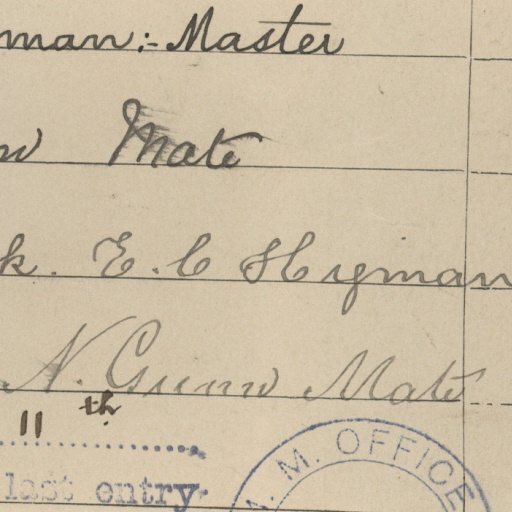 man:- Master
Mate
k. E. C Hyman
N. Gunn Mate
11th
last entry.
M. M. OFFICE